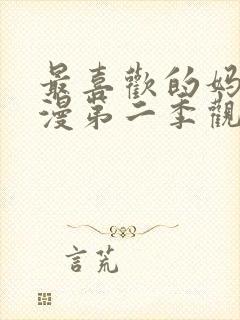 最喜歡的媽
漫第二季觀
言荒